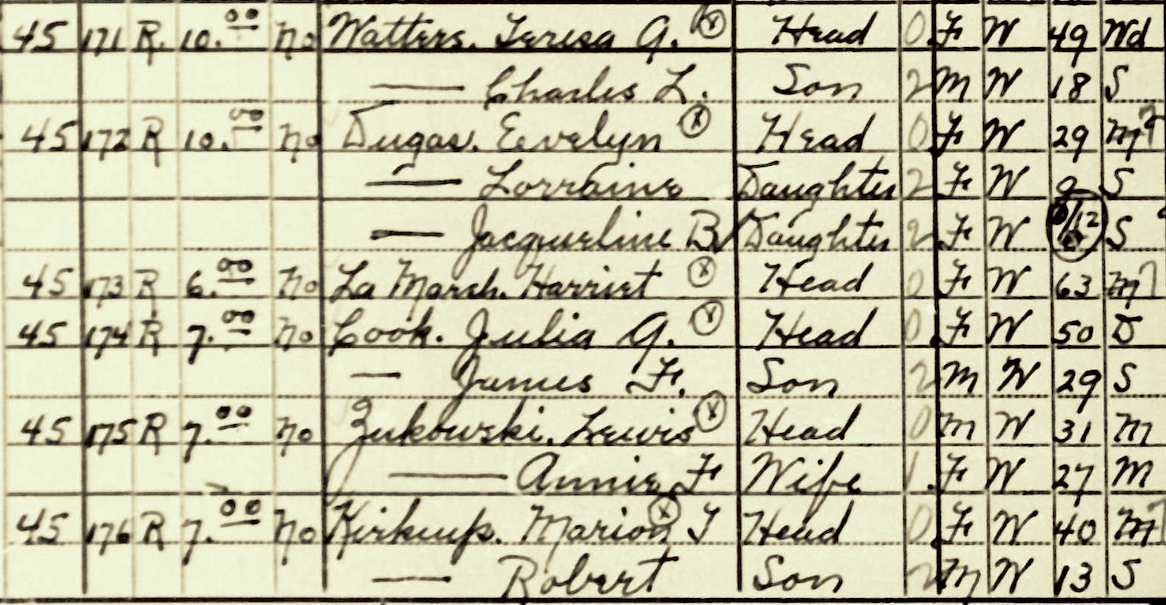 45 171 R 10.00 No Watters. Teresa G. ⓧ Head 0 F W 49 Wd
— Charles L. Son 2 M W 18 S
45 172 R 10.00 No Dugas. Eevelyn ⓧ Head 0 F W 29 M7
— Lorraine Daughter 2 F W 9 S
— Jacqueline B Daughter 2 F W /12 S
45 173 R 6.00 No La Marsh. Harriet ⓧ Head 0 F W 63 M7
45 174 R 7.00 No Cook. Julia G. ⓧ Head 0 F W 50 D
— James F. Son 2 M W 29 S
45 175 R 7.00 No Zukowski. Lewis ⓧ Head 0 M W 31 M
— Annie F Wife 1 F W 27 M
45 176 R 7.00 No Kirkup. Marion T ⓧ Head 0 F W 40 M7
— Robert Son 2 M W 13 S